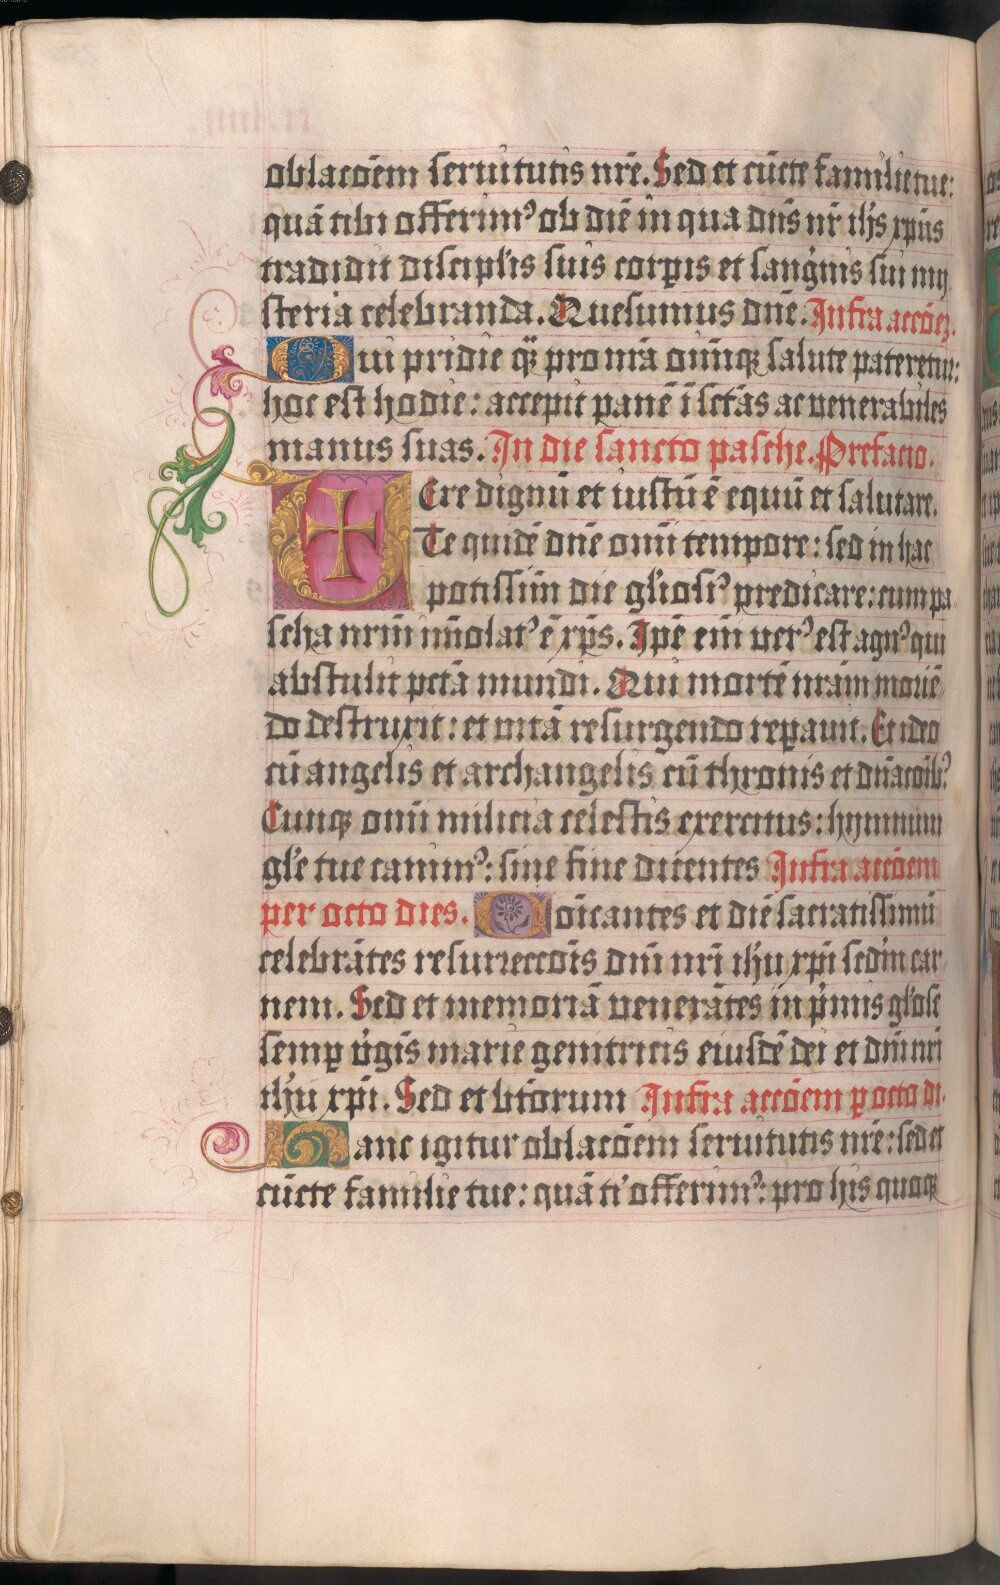 oblacōem seruitutis nr̄e. Sed et cūcte familie tue:
quā tibi offerimꝰ ob diē in qua dn̄s nr̄ ih̄s xp̄us
tradidit discipl̄is suis corꝑis et sang̍nis sui my
steria celebranda. Quesumus dn̄e. Infra accōeꝫ.
Qui pridie qͣꝫ pro nr̄a oīnqꝫ salute pateretur:
hoc est hodie: accepit panē ī sc̄tās ac uenerabiles
manus suas. In die sancto pasche. Prefacio.
UEre dignū et iustū ē equū et salutare.
Te quidē dn̄e om̄i tempore: sed in hac
potissim̄ die gl̄iosiꝰ predicare: cum pa
scha nr̄m īm̄olatꝰ ē xp̄s. Ip̄e em̄ uerꝰ est agnꝰ qui
abstulit pc̄tā mundi. Qui mortē nr̄am moriē
do destruxit: et uitā resurgendo reꝑauit. Et ideo
cū angelis et archangelis cū thronis et dn̄acoībꝰ
Cunqꝫ om̄i milicia celestis exercitus: hymnum
gl̄e tue canimꝰ: sine fine dicentes Infra accōem
per octo dies. Cōicantes et diē sacratissimū
celebrātes resurreccōis dn̄i nr̄i ih̄u xp̄i scd̄m car
nem. Sed et memoriā uenerātes in p̍mis gl̄ose
semꝑ u̍gīs marie genitricis eiusdē dei et dn̄i nr̄i
ih̄u xp̄i. Sed et bt̄orum Infra accōem ꝑ octo di.
Hanc igitur oblacōem seruitutis nr̄e: sed et
cūcte familie tue: quā ti̍ offerimꝰ: pro his quoqꝫ